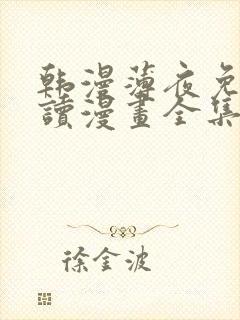 韩漫薄夜免
讀漫畫全集
徐金波